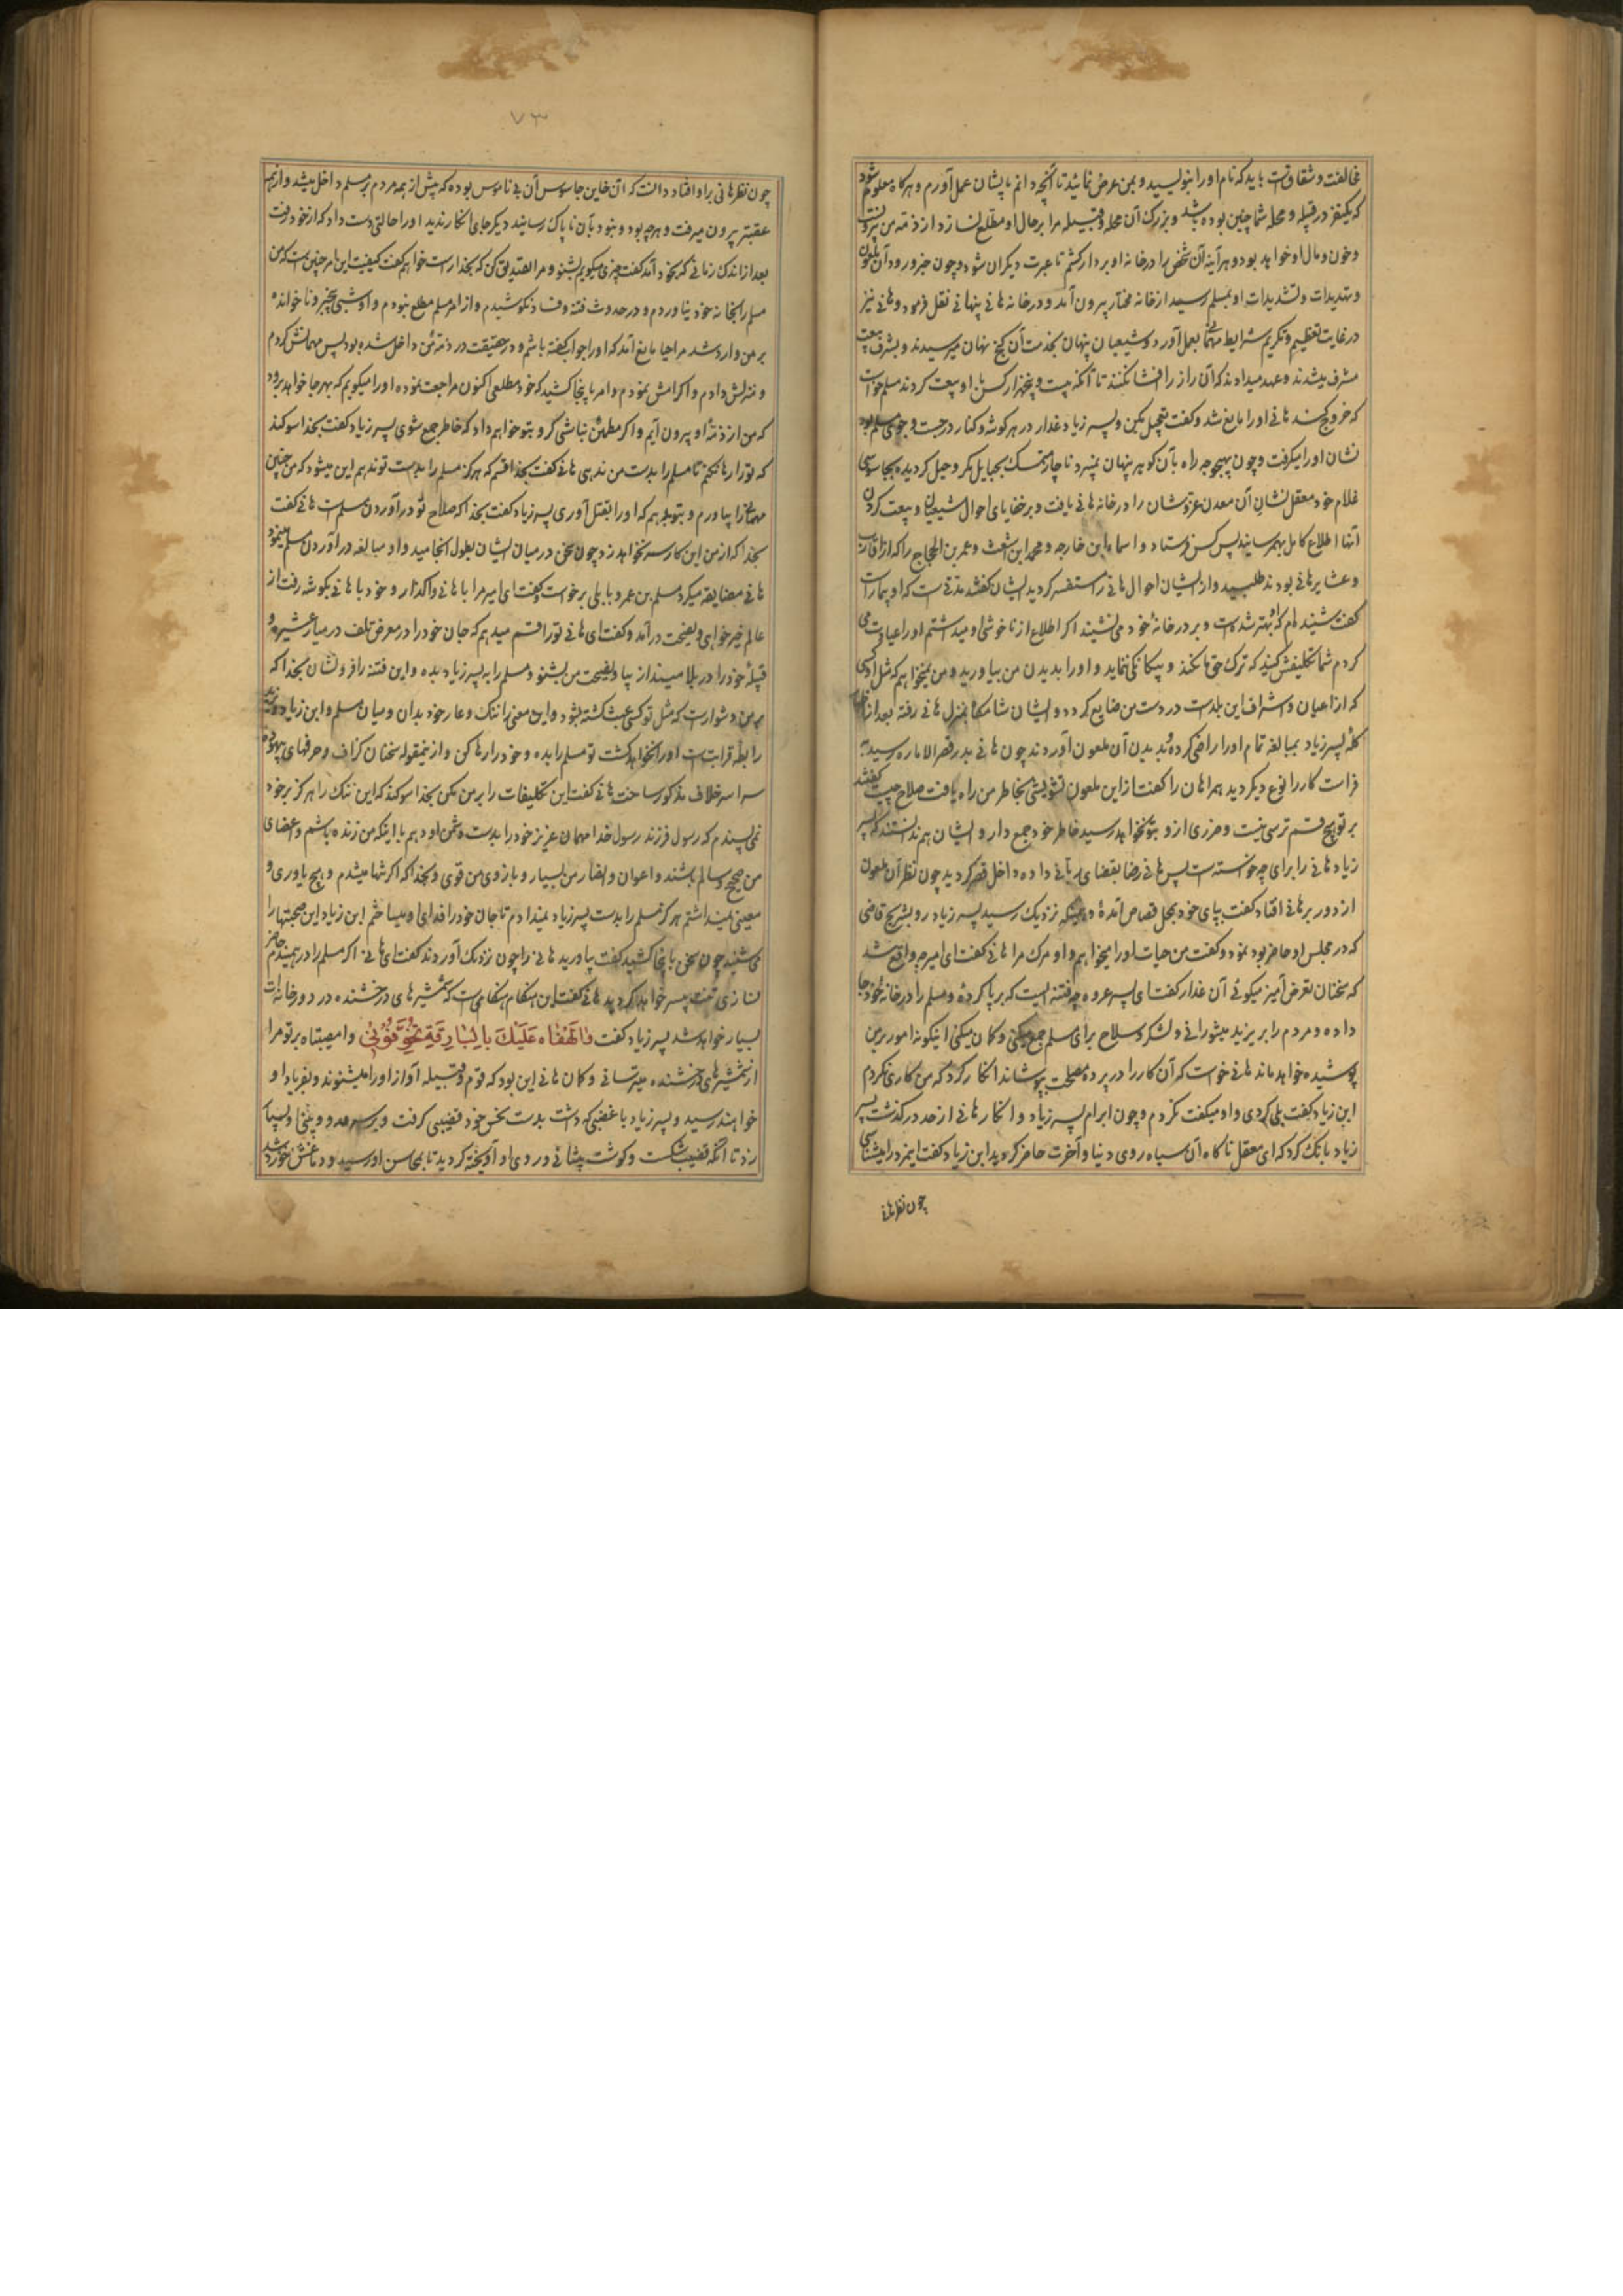 مخالفت و شقاقست باید که نام او را بنویسید و بمن عرض نمائید تا آنچه دانم بایشان عمل آورم و هرگاه معلوم شود
که یکنفر در قبیله و محله شما چنین بوده باشد و بزرک آن محله و قبیله مرا بر حال او مطلع نسازد از ذمّه من بیرونست
و خون و مال او خواهد بود و هر آینه آن شخص را در خانه او بردار کشم تا عبرت دیکران شود و چون خبر ورود آن ملعون
و تهدیدات و تشدیدات او بمسلم رسید از خانه مختار بیرون آمد و در خانه هانی پنهانی نقل فرمود و هانی نیز
در غایت تعظیم و تکریم شرایط مهمانی بعمل آورد و شیعیان پنهان بخدمت آن کنج نهان میرسیدند و بشرف بیعت
مشرف میشدند و عهد میدادند که آن راز را افشا نکنند تا آنکه بیست و پنجهزار کس با او بیعت کردند مسلم خواست
که خروج کند هانی او را مانع شد و کفت تعجیل مکن و پسر زیاد غدار در هر کوشه و کنار در جست و جوی مسلم بود
نشان او را میکرفت و چون بهیچوجه راه بآن کوهر پنهان نمیبرد ناچار تمسک بحبایل مکر و حیل کردیده بجاسوسی
غلام خود معقل نشان آن معدن عز و شان را در خانه هانی یافت و بر خفایای احوال شیعیان و بیعت کردن
آنها اطلاع کامل بهمرسانید پس کس فرستاد و اسماء ابن خارجه و محمد ابن اشعث و عمر بن الحجاج را که از اقارب
و عشایر هانی بودند طلبید و از ایشان احوال هانی را مستفسر کردید ایشان کفتند مدتی است که او بیمار است
کفت شنیده‌ام که او بهتر شده است و بر در خانۀ خود می‌نشیند اکر اطلاع از ناخوشی او میداشتم او را عیادت می
کردم شما تکلیفش کنید که ترک حق ما نکند و بیکانکی ننماید و او را بدیدن من بیاورید و من نمیخواهم که مثل او کسی
که از اعیان و اشراف این بلد است در دست من ضایع کردد و ایشان شامکاه بمنزل هانی رفته بعد از اظهار
کلۀ پسر زیاد بمبالغه تمام او را راضی کرده بدیدن آن ملعون آوردند چون هانی بدر قصر الاماره رسید به
فراست کار را نوع دیکر دید همراهان را کفت از این ملعون تشویشی بخاطر من راه یافت صلاح چیست کفتند
بر تو هیچ قسم ترسی نیست و ضرری از او بتو نخواهد رسید خاطر خود جمع دار و ایشان هم ندانستند که پسر
زیاد هانی را برای چه خواسته است پس هانی رضا بقضای ربانی داده داخل قصر کردید چون نظر آن ملعون
از دور بر هانی افتاد کفت بپای خود بمحل قصاص آمدۀ و همینکه نزدیک رسید پسر زیاد رو بشریح قاضی
که در مجلس او حاضر بود نمود و کفت من حیات او را میخواهم و او مرک مرا هانی کفت ای امیر چه واقع شد
که سخنان تعرض آمیز میکوئی آن غدار کفت ای پسر عروه چه فتنه ایست که برپا کردۀ و مسلم را در خانۀ خود جا
داده و مردم را بر یزید میشورانی و لشکر و سلاح برای مسلم جمع میکنی و کمان میکنی اینکونه امور بر من
پوشیده خواهد ماند هانی خواست که آن کار را در پردۀ مصلحت بپوشاند انکار کرد که من کاری نکردم
ابن زیاد کفت بلی کردی و او میکفت نکردم و چون ابرام پسر زیاد و انکار هانی از حد در کذشت پسر
زیاد بانک کرد که ای معقل ناکاه آن سیاه روی دنیا و آخرت حاضر کردید ابن زیاد کفت اینمرد را میشناسی
چون نظر هانی
۷۳
چون نظر هانی بر او افتاد دانست که آن خاین جاسوس آن بی ناموس بوده که پیش از همه مردم بر مسلم داخل میشد و از همه
عقبتر بیرون میرفت و هرچه بود و نبود بآن ناپاک رسانید دیکر جای انکار ندید او را حالتی دست داد که از خود رفت
بعد از اندک زمانی که بخود آمد کفت چیزی میکویم بشنو و مرا تصدیق کن که بخدا راست خواهم کفت کیفیت این امر چنین است که من
مسلم را بخانه خود نیاوردم و در حدوث فتنه و فساد نکوشیدم و از امر مسلم مطلع نبودم و او شبی بیخبر و ناخوانده
بر من وارد شد مرا حیا مانع آمد که او را جواب کفته باشم و در حقیقت در ذمّۀ من داخل شده بود پس مهمانش کردم
و منزلش دادم و اکرامش نمودم و امر باینجا کشید که خود مطلعی اکنون مراجعت نموده او را میکویم که بهر جا خواهد برود
که من از ذمّۀ او بیرون آیم و اکر مطمئن نباشی کرو بتو خواهم داد که خاطر جمع شوی پسر زیاد کفت بخدا سوکند
که تو را رها نکنم تا مسلم را بدست من ندهی هانی کفت بخدا قسم که هرکز مسلم را بدست تو ندهم این میشود که من چنین
مهمانی را بیاورم و بتو بدهم که او را بقتل آوری پسر زیاد کفت بخدا که صلاح تو در آوردن مسلم است هانی کفت
بخدا که از من این کار سر نخواهد زد چون سخن در میان ایشان بطول انجامید و او مبالغه در آوردن مسلم مینمود
هانی مضایقه میکرد مسلم بن عمرو باهلی برخواست و کفت ای امیر مرا با هانی واکذار و خود با هانی بکوشه رفت از
عالم خیر خواهی و نصیحت در آمد و کفت ای هانی تو را قسم میدهم که جان خود را در معرض تلف در میار عشیره و
قبیلۀ خود را در بلا مینداز بیا و نصیحت من بشنو و مسلم را به پسر زیاد بده و این فتنه را فرو نشان بخدا که
بر من دشوار است که مثل تو کسی عبث کشته بشود و این معنی را ننک و عار خود بدان و میان مسلم و ابن زیاد
رابطه قرابت است او را نخواهد کشت تو مسلم را بده و خود را رها کن و از اینمقوله سخنان کزاف و حرفهای بیهوده
سراسر خلاف مذکور ساخت هانی کفت این تکلیفات را بر من مکن بخدا سوکند که این ننک را هرکز بر خود
نمی پسندم که رسول فرزند رسول خدا مهمان عزیز خود را بدست دشمن او دهم با اینکه من زنده باشم و اعضای
من صحیح و سالم باشند و اعوان و انصار من بسیار و بازوی من قوی و بخدا که اکر تنها میشدم و هیچ یاوری و
معینی نمیداشتم هرکز مسلم را بدست پسر زیاد نمیدادم تا جان خود را فدای او میساختم ابن زیاد این صحبتها را
می شنید چون سخن باینجا کشید کفت بیاورید هانی را چون نزدیک آوردند کفت ای هانی اکر مسلم را در همیندم حاضر
نسازی تنت بی سر خواهد کردید هانی کفت این هنکام هنکامی است که شمشیرهای درخشنده در دور خانه ات
بسیار خواهد شد پسر زیاد کفت وا لَهْفاه عَلَیْكَ بِالْبارِقَةِ تُخَوِّفُونی وا مصیبتاه بر تو مرا
از شمشیرهای درخشنده میترسانی و کمان هانی این بود که قوم و قبیله آواز او را میشنوند و بفریاد او
خواهند رسید و پسر زیاد با غضبی که داشت بدست نحس خود قضیبی کرفت و بر سر و رو و بینی او بسیار
زد تا آنکه قضیب شکست و کوشت پیشانی و روی او آویخته کردید تا بمحاسن او رسید و دماغش خورد شد